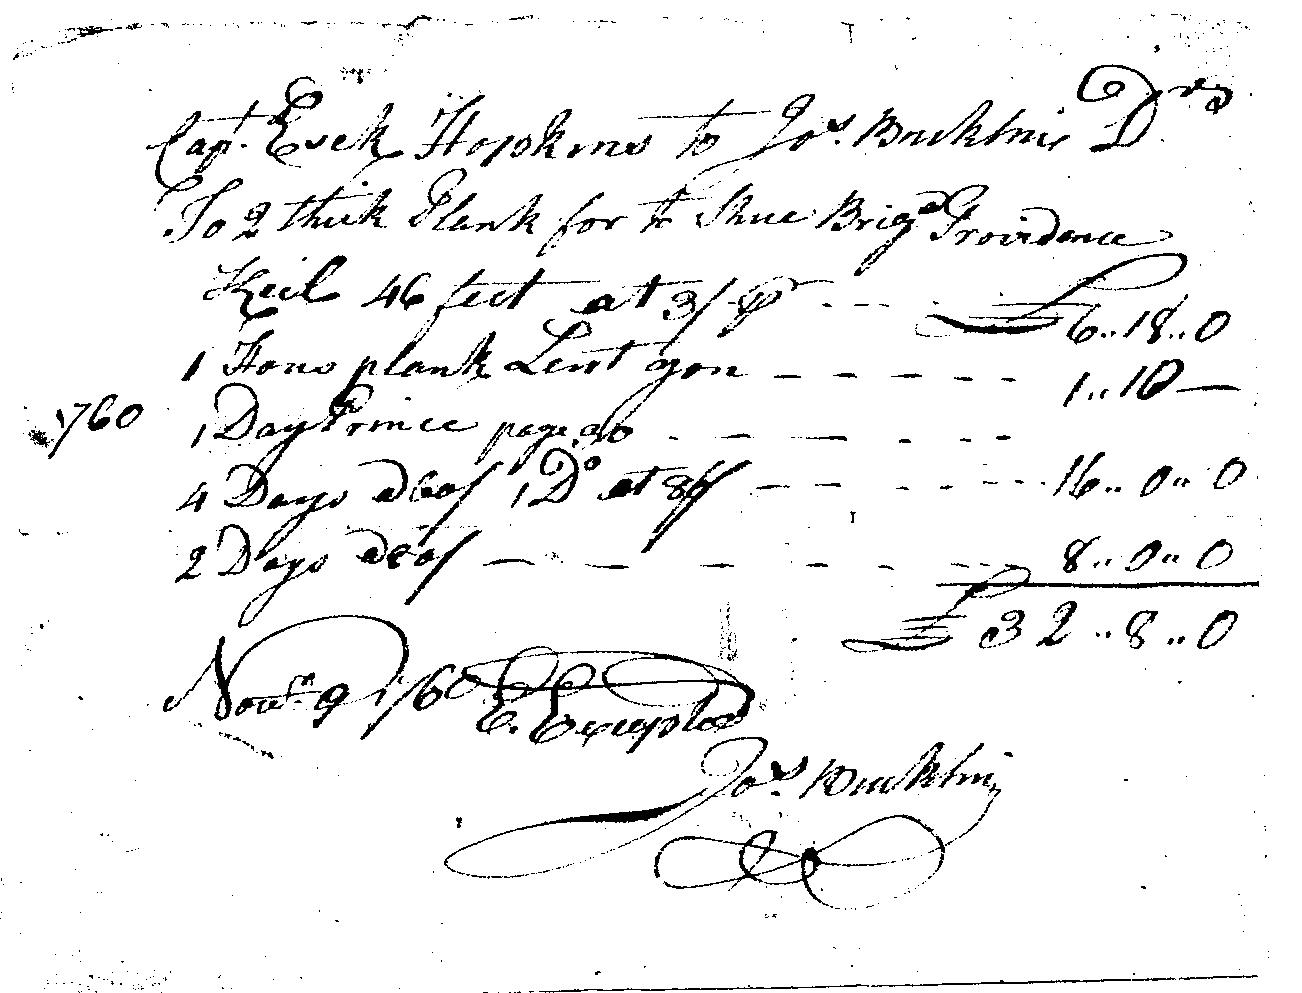 Capt. Esek Hopkins to Jos. Bucklin Dr
To 2 thick Plank for the Brigd Providence
Keil 46 feet at 3/ p - - - £6..18..0
1 plank Lent you - - - - - - 1..10 —
1760 1 Day Prince page 20 - - - - - -
4 Days 1 Do at - - - - - - 16..0..0
2 Days - - - - - - 8..0..0
£32..8..0
Novr. 9 1760 E. Excepted
Jos. Bucklin